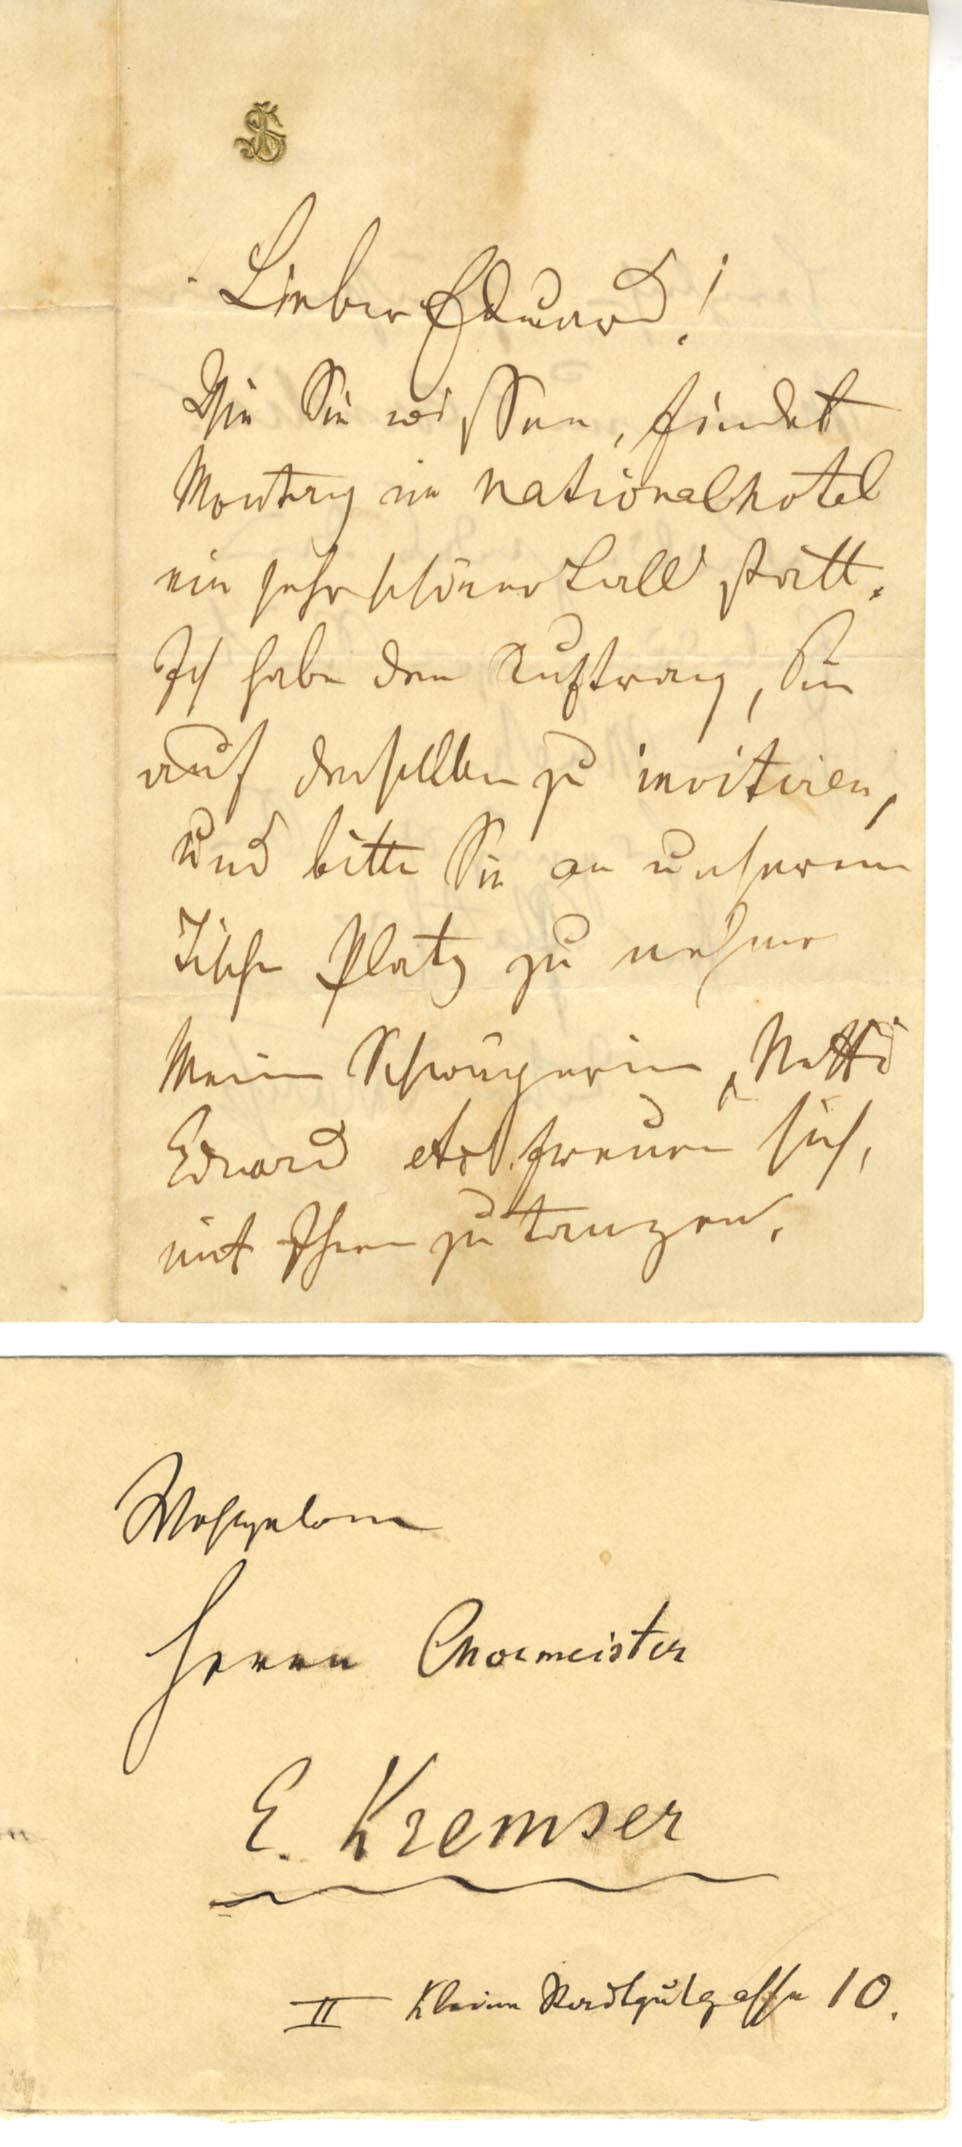 JS
Lieber Eduard!
Wie Sie wissen, findet
Montag im Nationalhotel
ein sehr schöner Ball statt.
Ich habe den Auftrag, Sie
auf denselben zu invitiren,
und bitte Sie an unserem
Tische Platz zu nehmen
Meine Schwägerin, Netti
Eduard etc freuen sich,
mit Ihnen zu tanzen.
Wohlgeboren
Herrn Chormeister
E. Kremser
II Kleine Stadtgutgasse 10.